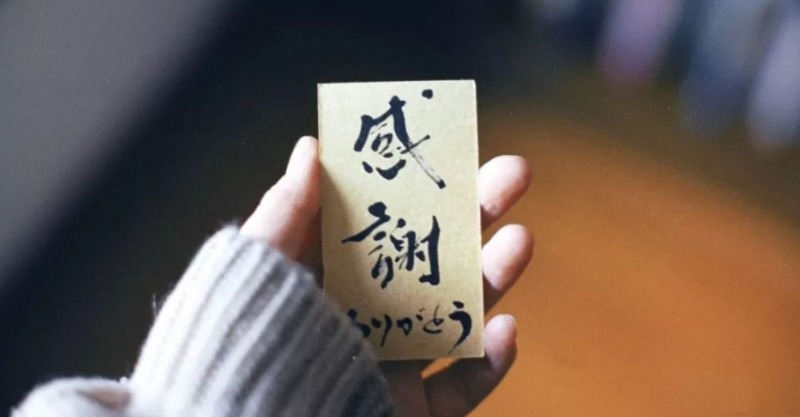 感
謝
ありがとう